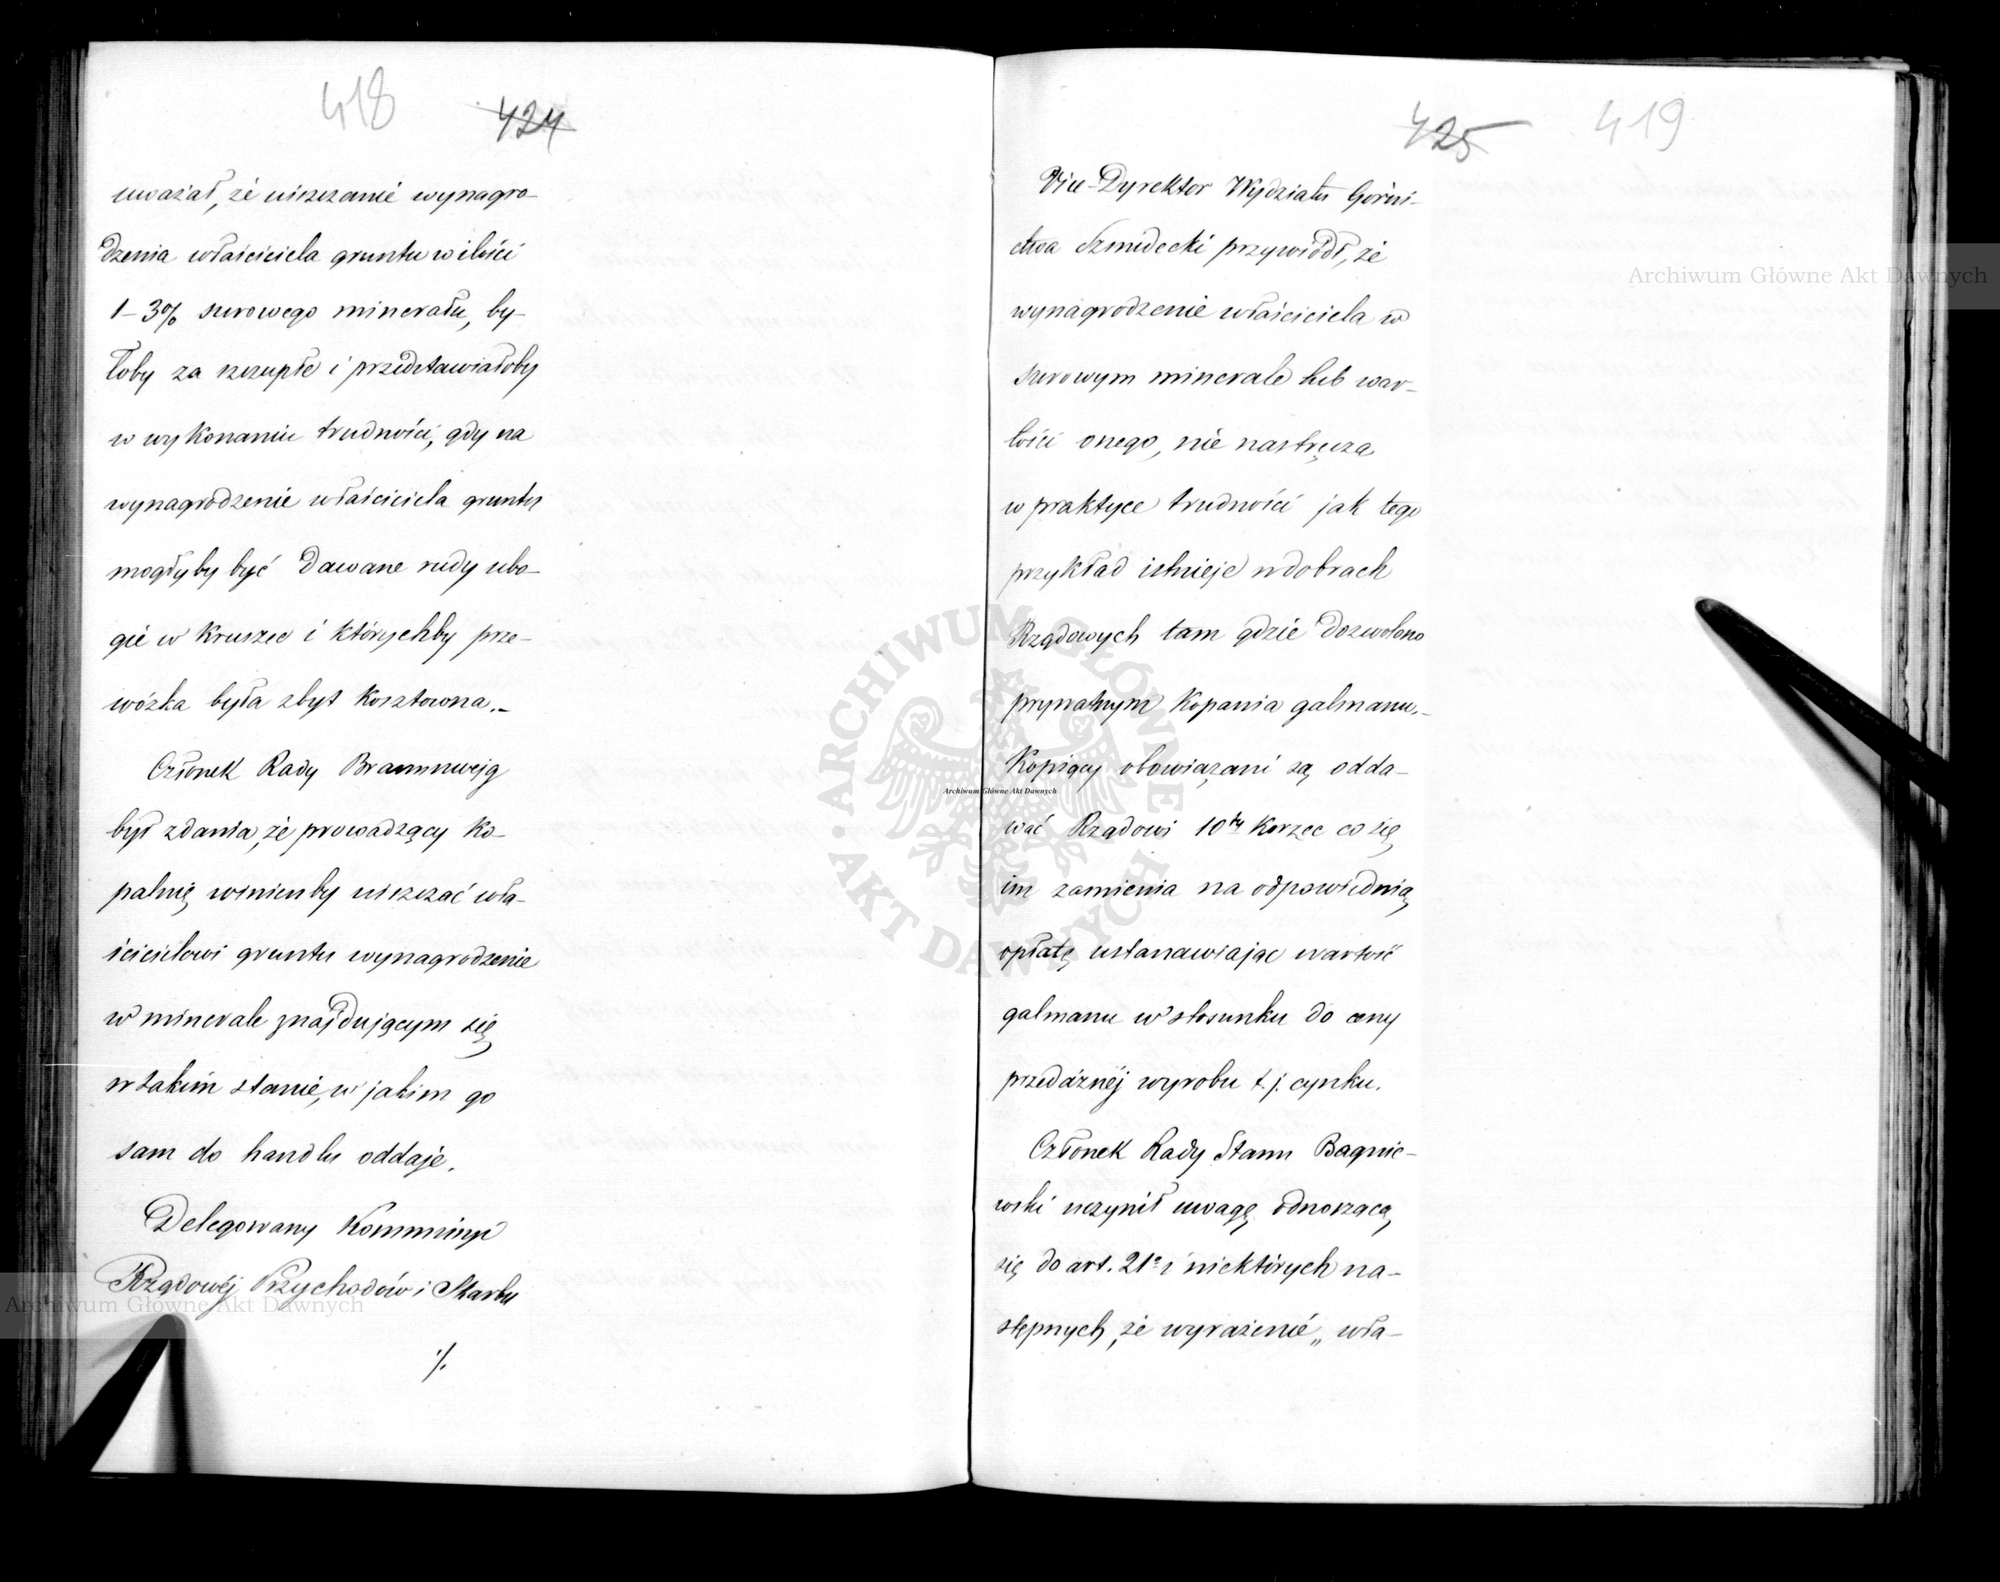 418 424
uważał, że uiszczanie wynagro-
dzenia właściciela gruntu w ilości
1–3% surowego minerału, by-
łoby za szczupłe i przedstawiałoby
w wykonaniu trudności, gdy na
wynagrodzenie właściciela gruntu
mogłyby być dawane rudy ubo-
gie w kruszec i którychby prze-
wózka była zbyt kosztowna.–
Członek Rady Braunszwejg
był zdania, że prowadzący ko-
palnię winienby uiszczać wła-
ścicielowi gruntu wynagrodzenie
w minerale znajdującym się
w takim stanie, w jakim go
sam do handlu oddaje.
Delegowany Kommissyi
Rządowéj Przychodów i Skarbu
./.
425 419
Vice-Dyrektor Wydziału Górni-
ctwa Szmidecki przywiódł, że
wynagrodzenie właściciela w
surowym minerale lub war-
tości onego, nie nastręcza
w praktyce trudności jak tego
przykład istnieje w dobrach
Rządowych tam gdzie dozwolono
prywatnym kopania galmanu.–
Kopiący obowiązani są odda-
wać Rządowi 10ty Korzec co się
im zamienia na odpowiednią
opłatę ustanawiając wartość
galmanu w stosunku do ceny
przedażnéj wyrobu t.j. cynku.
Członek Rady Stanu Bagnie-
wski uczynił uwagę odnoszącą
się do art. 21o i niektórych na-
stępnych, że wyrażenie „wła-
Archiwum Główne Akt Dawnych
ARCHIWUM GŁÓWNE AKT DAWNYCH
Archiwum Główne Akt Dawnych
Archiwum Główne Akt Dawnych